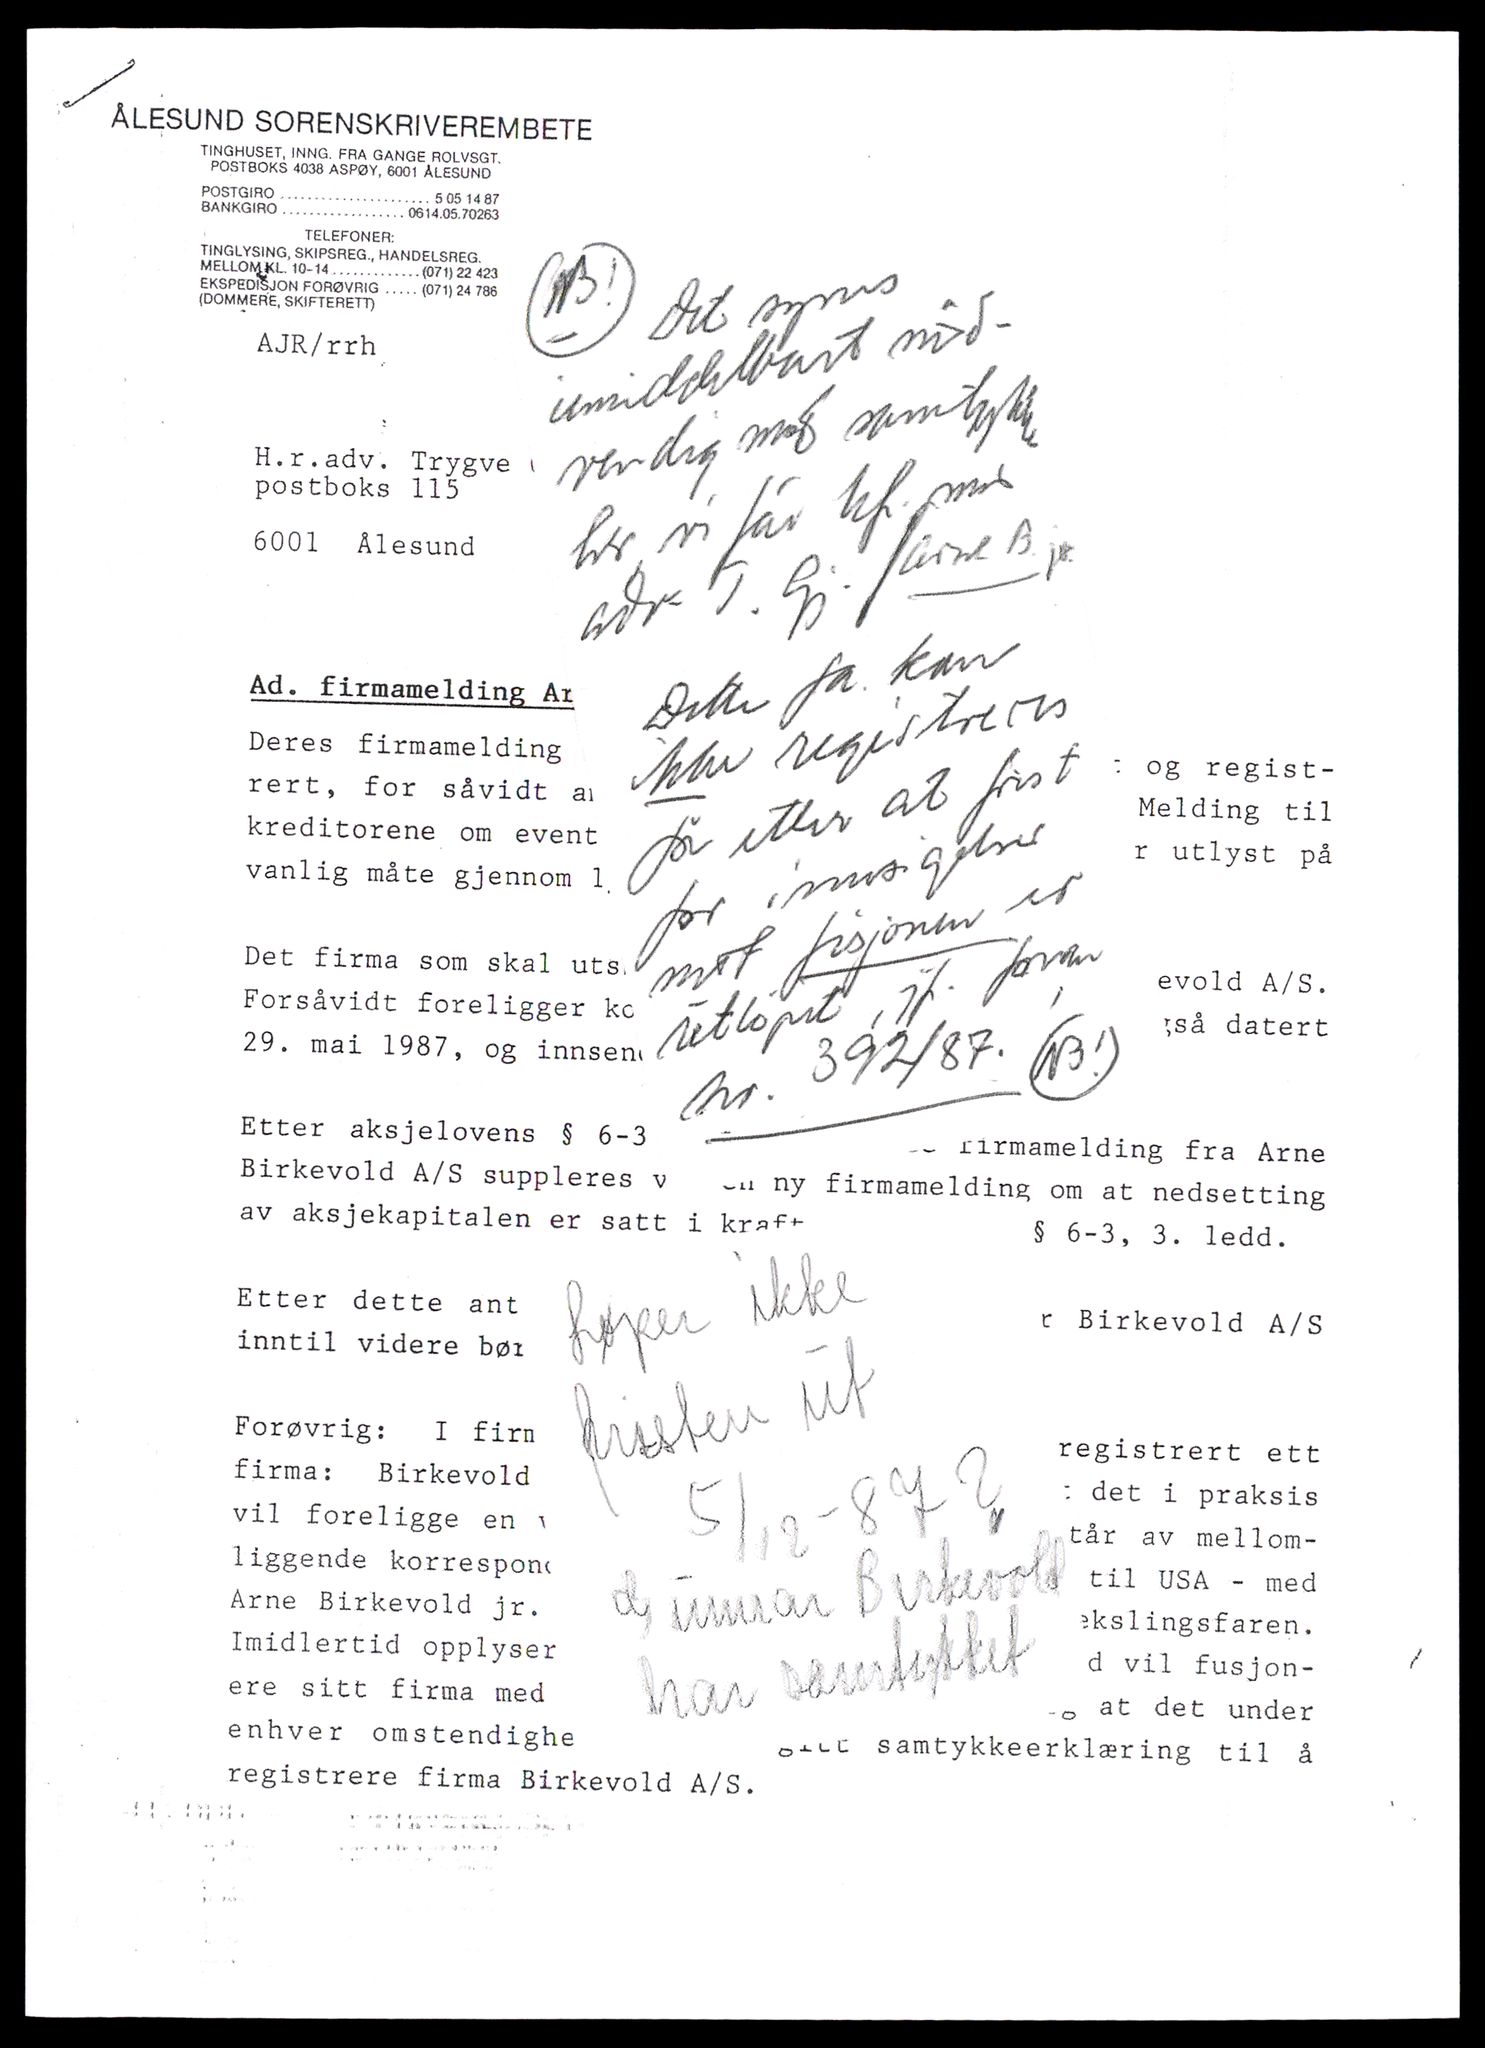 ÅLESUND SORENSKRIVEREMBETE
TINGHUSET, INNG. FRA GANGE ROLVSGT.
POSTBOKS 4038 ASPØY, 6001 ÅLESUND
POSTGIRO ..................... 5 05 14 87
BANKGIRO ................. 0614.05.70263
TELEFONER:
TINGLYSING, SKIPSREG., HANDELSREG.
MELLOM KL. 10-14 ............. (071) 22 423
EKSPEDISJON FORØVRIG ..... (071) 24 786
(DOMMERE, SKIFTERETT)
AJR/rrh
H.r.adv. Trygve
postboks 115
6001 Ålesund
NB!
Det synes
umiddelbart nød-
vendig med samtykke
her, vi får kf. med
adv. T. Gj. / Arne B. jr.
Dette fa. kan
ikke registreres
før etter at frist
for innsigelser
mot fisjonen er
utløpt, jf. foran
nr. 392/87. NB!
Ad. firmamelding Ar
Deres firmamelding
rert, for såvidt og regist-
kreditorene om event Melding til
vanlig måte gjennom r utlyst på
Det firma som skal uts evold A/S.
Forsåvidt foreligger så datert
29. mai 1987, og innsen
Etter aksjelovens § 6-3 firmamelding fra Arne
Birkevold A/S suppleres v ny firmamelding om at nedsetting
av aksjekapitalen er satt i kraft § 6-3, 3. ledd.
Etter dette ant r Birkevold A/S
inntil videre bør
løper ikke
fristen ut
5/12-87?
Gunnar Birkevold
har samtykket
Forøvrig: I firm registrert ett
firma: Birkevold det i praksis
vil foreligge en tår av mellom-
liggende korrespond til USA - med
Arne Birkevold jr. ekslingsfaren.
Imidlertid opplyser d vil fusjon-
ere sitt firma med at det under
enhver omstendighe samtykkeerklæring til å
registrere firma Birkevold A/S.